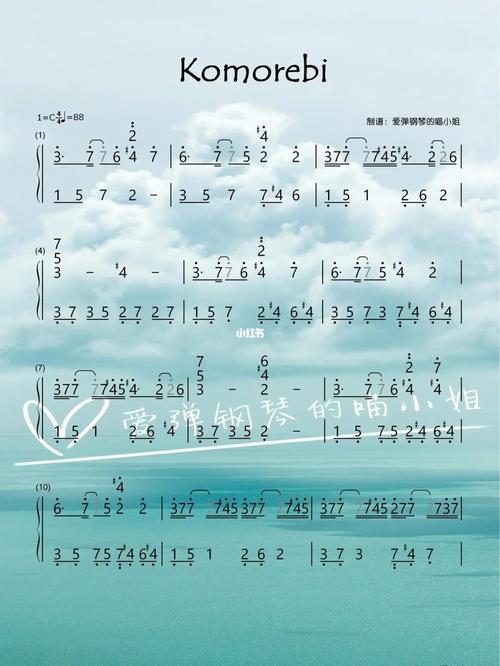 Komorebi
1=C 4/4 ♩=88
制谱：爱弹钢琴的喵小姐
(1)
2 #4
3· 7 7 6 #4 7 | 6· 7 7 5 2 2 | 3 7 7 7 7 4 5 #4· 2 2 6
1 5 7 2 – | 1 5 7 7 #4 6 | 1 5 1 2 #4 6 2
(4)
7 5 2 #4
3 – #4 – | 3· 7 7 6 #4 7 | 6· 7 7 5 #4 2
3 7 3 5 2 7 2 7 | 1 5 7 2 #4 6 #4 | 1 5 7 7 #4 6
小红书
(7)
7 5 6 #4
3 7 7 7 7 4 5 #4· 2 2 6 | 3 – 2 – | 3 7 7 7 7 4 5 #4· 3 2
1 5 1 2 6 #4 | 3 7 3 5 2 | 1 5 1 7 5 2 #4 6 #4
爱弹钢琴的喵小姐
(10)
#4
6· 7 7 5 2 2 | 3 7 7 7 7 4 5 3 7 7 #4 5 | 3 7 7 7 7 4 5 2 7 7 7 3 7
3 5 7 5 7 #4 6 #4 | 1 5 1 2 6 2 | 3 7 3 #4 7 #4